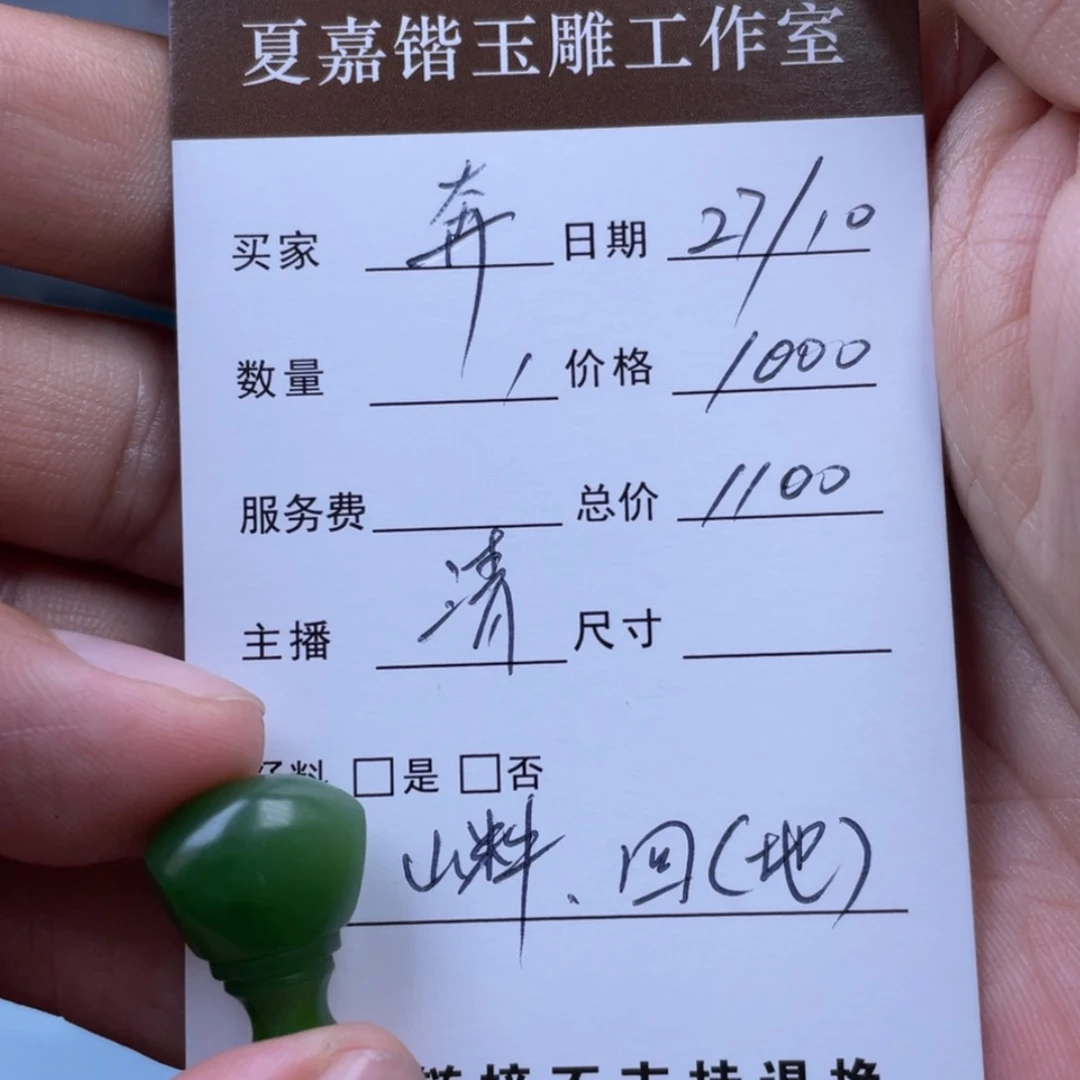 夏嘉锴玉雕工作室
买家 奔 日期 27/10
数量 1 价格 1000
服务费 总价 1100
主播 清 尺寸
料 □是 □否
山料、回(地)
不支持退换